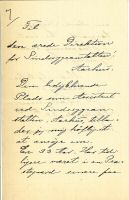 Til
den ærede Direktion
for Sindssygeanstalten
Aarhus.
Den ledigblevne
Plads som Assistent
ved Sindssygean-
stalten, Aarhus, tilla-
der jeg mig høfligst
at ansøge om.
Jeg er 22 Aar. Har tid-
ligere været i en